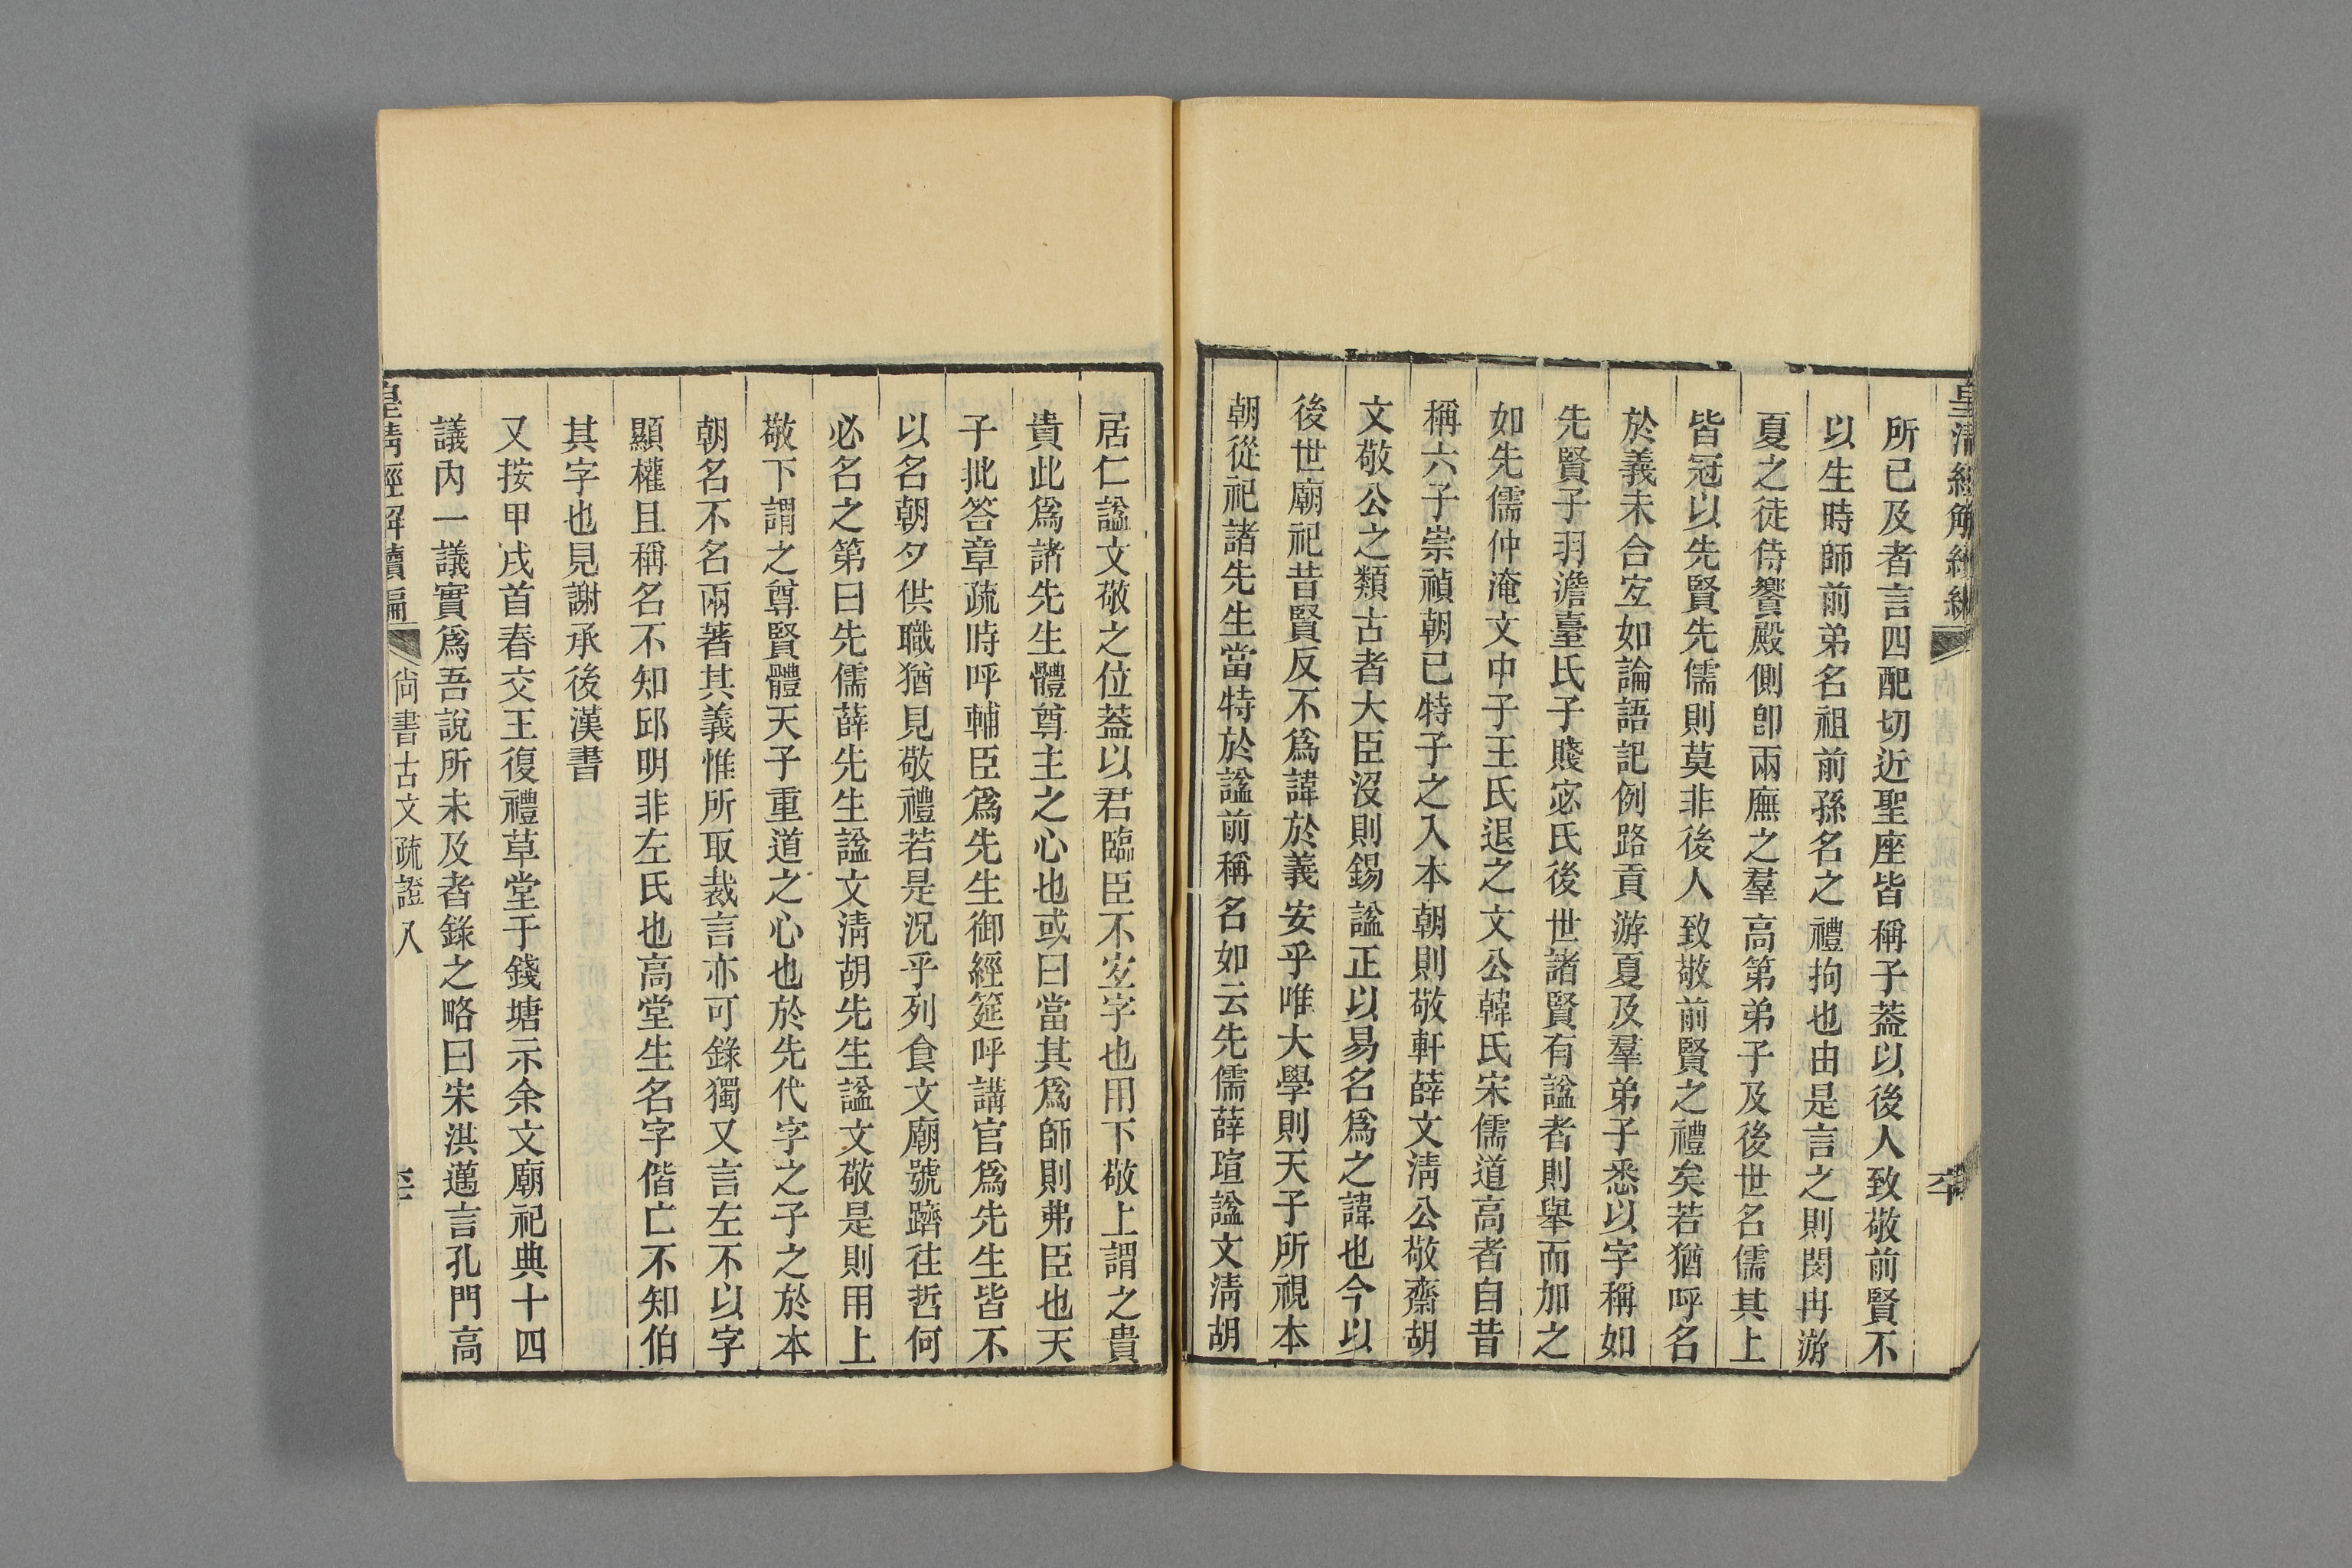 皇清經解續編
所已及者言四配切近聖座皆稱子葢以後人致敬前賢不
以生時師前弟名祖前孫名之禮拘也由是言之則閔冉游
夏之徒侍饗殿側卽兩廡之羣高第弟子及後世名儒其上
皆冠以先賢先儒則莫非後人致敬前賢之禮矣若猶呼名
於義未合宐如論語記例路貢游夏及羣弟子悉以字稱如
先賢子羽澹臺氏子賤宓氏後世諸賢有諡者則舉而加之
如先儒仲淹文中子王氏退之文公韓氏宋儒道高者自昔
稱六子崇禎朝已特子之入本朝則敬軒薛文淸公敬齋胡
文敬公之類古者大臣沒則錫諡正以易名爲之諱也今以
後世廟祀昔賢反不爲諱於義安乎唯大學則天子所視本
朝從祀諸先生當特於諡前稱名如云先儒薛瑄諡文淸胡
居仁諡文敬之位葢以君臨臣不宐字也用下敬上謂之貴
貴此爲諸先生體尊主之心也或曰當其爲師則弗臣也天
子批答章疏時呼輔臣爲先生御經筵呼講官爲先生皆不
以名朝夕供職猶見敬禮若是況乎列食文廟號躋往哲何
必名之第曰先儒薛先生諡文淸胡先生諡文敬是則用上
敬下謂之尊賢體天子重道之心也於先代字之子之於本
朝名不名兩著其義惟所取裁言亦可錄獨又言左不以字
顯權且稱名不知邱明非左氏也高堂生名字偕亡不知伯
其字也見謝承後漢書
又按甲戌首春交王復禮草堂于錢塘示余文廟祀典十四
議內一議實爲吾說所未及者錄之略曰宋洪邁言孔門高
皇淸經解續編
尙書古文疏證八